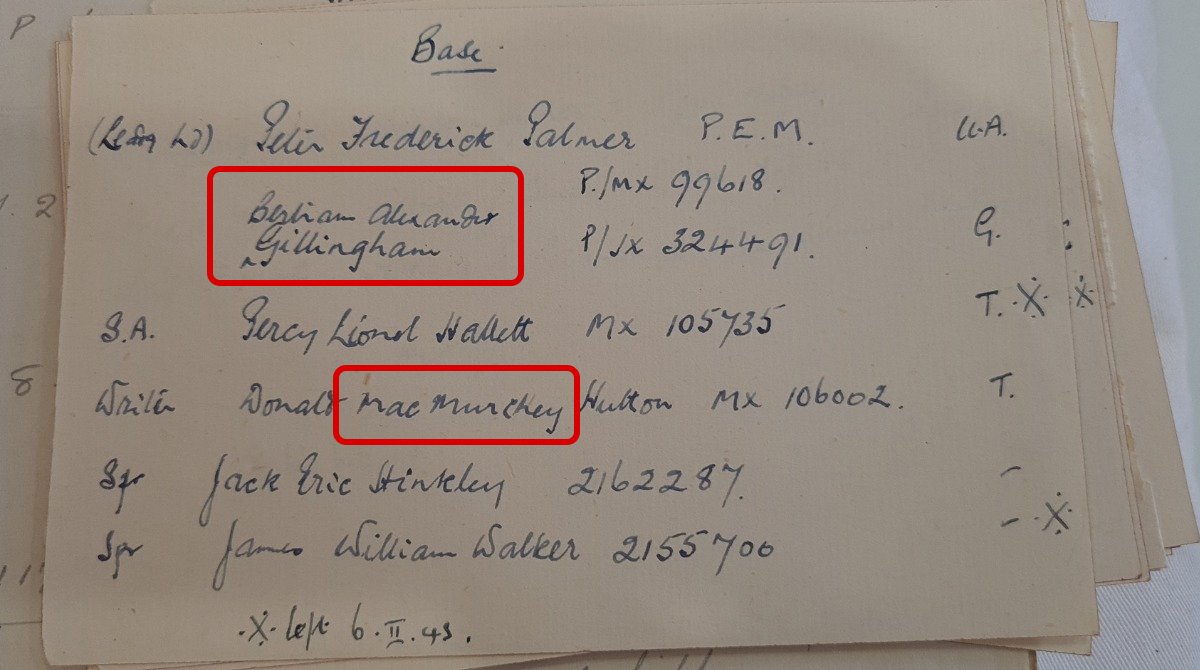 P
Base
(Ledg Ld) Peter Frederick Palmer P.E.M. U.A.
P./MX 99618.
2
Bertram Alexander
Gillingham P/JX 324491. G. :
S.A. Percy Lionel Hallett MX 105735 T. ·X· ·X·
8
Writer Donald MacMurchey Hutton MX 106002. T.
Spr Jack Eric Hinkley 2162287. -
Spr James William Walker 2155700 - ·X·
·X· left 6.II.43.